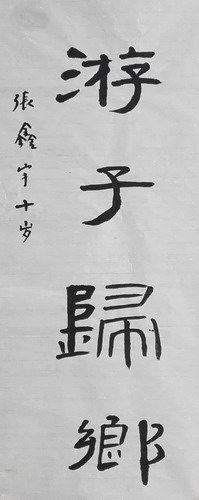 游子歸鄉
張鑫宇十岁